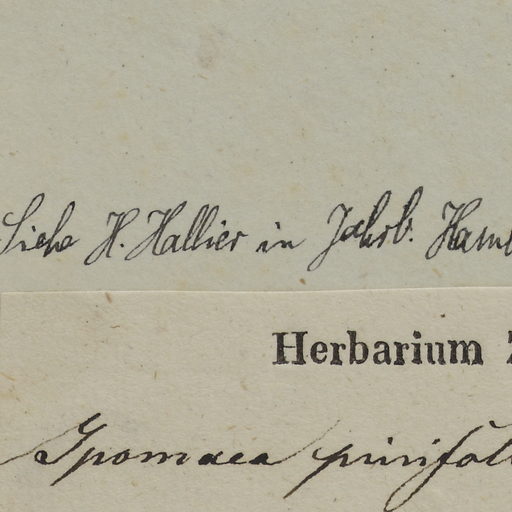 Siehe H. Hallier in Jahrb. Hamb
Herbarium
Ipomaea pirifol